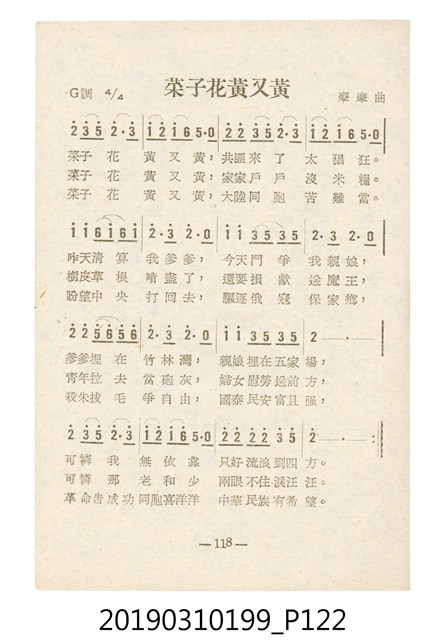 菜子花黃又黃
G調 4/4
摩摩曲
2 3 5 2·3 | 1 2 1 6 5·0 | 2 2 3 5 2·3 | 1 2 1 6 5·0
菜子花黃又黃，共匪來了太猖狂。
菜子花黃又黃，家家戶戶沒米糧。
菜子花黃又黃，大陸同胞苦難當。
1 1 6 1 6 1 | 2·3 2·0 | 1 1 3 5 3 5 | 2·3 2·0
昨天清算我爹爹，今天鬥爭我親娘，
樹皮草根啃盡了，還要損獻送魔王，
盼望中央打回去，驅逐俄寇保家鄉，
2 2 5 6 5 6 | 2·3 2·0 | 1 1 3 5 3 5 | 2 — · —
爹爹埋在竹林灣，親娘埋在五家場，
青年拉去當砲灰，婦女慰勞送前方，
殺朱拔毛爭自由，國泰民安富且强，
2 3 5 2·3 | 1 2 1 6 5·0 | 2 2 2 2 3 5 | 2 — · —
可憐我無依靠只好流浪到四方。
可憐那老和少兩眼不住淚汪汪。
革命告成功同胞喜洋洋中華民族有希望。
—118—
20190310199_P122